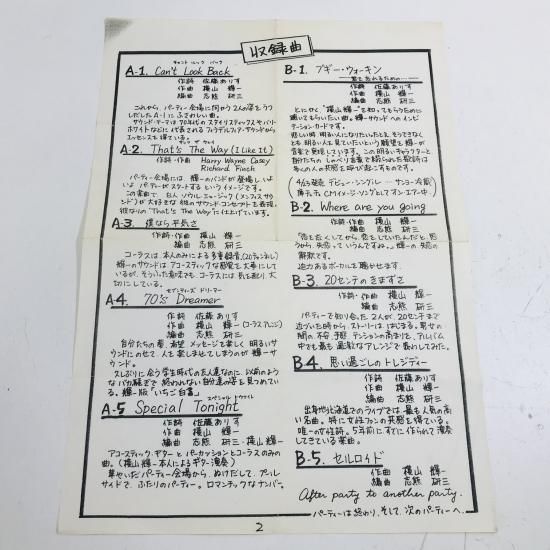 収録曲
キャント ルック バック
A-1. Can't Look Back
作詞 佐藤ありす
作曲 横山 輝一
編曲 志熊 研三
これから、パーティー会場に向かう2人の姿をうつ
しだしたA-1にふさわしい曲。
サウンド・テーマは70年代のスタイリスティックスやバリー
ホワイトなどに代表されるフィラデルフィア・サウンドから
エッセンスを得ている。
ザッツ ザ ウェイ
A-2. That's The Way (I Like It)
作詞・作曲 Harry Wayne Casey
Richard Finch
パーティー会場には、輝一のバンドが登場し、いよ
いよ パーティーがスタートするというイメージです。
この楽曲で、白人ソウルミュージック(メンフィスサウ
ンド)が大好きな彼のサウンドコンセプトを表現。
彼なりの"That's The Way"に仕上げています。
A-3. 僕なら平気さ
作詞・作曲 横山 輝一
編曲 志熊 研三
コーラスは、本人のみによる多重録音。(20チャンネル)
輝一のサウンドは、アコースティックな感覚を大事にして
いるが、そういった意味でも、コーラスには、気を配り、大
切にしている。
セブンティーズ ドリーマー
A-4. 70's Dreamer
作詞 佐藤 ありす
作曲 横山 輝一(コーラスアレンジ)
編曲 志熊 研三
自分たちの夢、希望、メッセージを楽しく 明るいサ
ウンドにのせて、人を楽しませてしまうのが 輝一サウ
ンド。
久しぶりに会う学生時代の友人達なのに、以前のよう
なバカ騒ぎで 終われない自分達の姿を見つめてい
る。輝一版"いちご白書"
スペシャル トゥナイト
A-5 Special Tonight
作詞 佐藤 ありす
作曲 横山 輝一
編曲 志熊 研三・横山輝一
アコースティック・ギターと パーカッションとコーラスのみの
曲。(横山輝一本人によるギター演奏)
華やいだパーティー会場から、ぬけだして、プール
サイドで、ふたりのパーティー。ロマンチックなナンバー。
B-1. ブギー・ウォーキン
—君を忘れるための—
作詞 佐藤ありす
作曲 横山 輝一
編曲 志熊 研三
とにかく、"横山輝一"を知ってもらうために
聴いてもらいたい曲。輝一サウンドへのインビ
テーションカードです。
悲しい時、明るい人になりたいたと、そうできなく
とも明るい人を見ていたいという願望を 輝一が
音楽で実現しています。この明るいキャラクターと
自分たちの しゃべり言葉で綴られた歌詞は
多くの人の共感を呼び起こすものです。
(4/13発売 デビュー・シングル— サンヨー冷蔵
庫ティオ、CMイメージソングとしてオンエアー中)
B-2. Where are you going
作詞・作曲 横山 輝一
編曲 志熊 研三
"恋を亡くしてから、恋をしていたんだと、思
うから、失恋っていうんですね。"輝一の失恋の
解釈です。
迫力あるボーカルを 聴かせます。
B-3. 20センチのきまずさ
作詞・作曲 横山 輝一
編曲 志熊 研三
パーティーで知り合った2人が、20センチまで
近づいた時から、ストーリーは、はじまる。男女の
間の、不安、予感、テンションの高まりを、アルバム
中でも最も 過激なアレンジで表わしてみた。
B-4. 思い過ごしのトレジディー
作詞 佐藤 ありす
作曲 横山 輝一
編曲 志熊 研三
出身地北海道でのライブでは、最も人気の高
い名曲。特に女性ファンの共感を得ている。
唯一の女性詩。5年前にすでに作られて演奏
してきている楽曲。
B-5. セルロイド
作曲 横山 輝一
編曲 志熊 研三
After party to another party.
—パーティーは終わり、そして、次のパーティーへ。
2